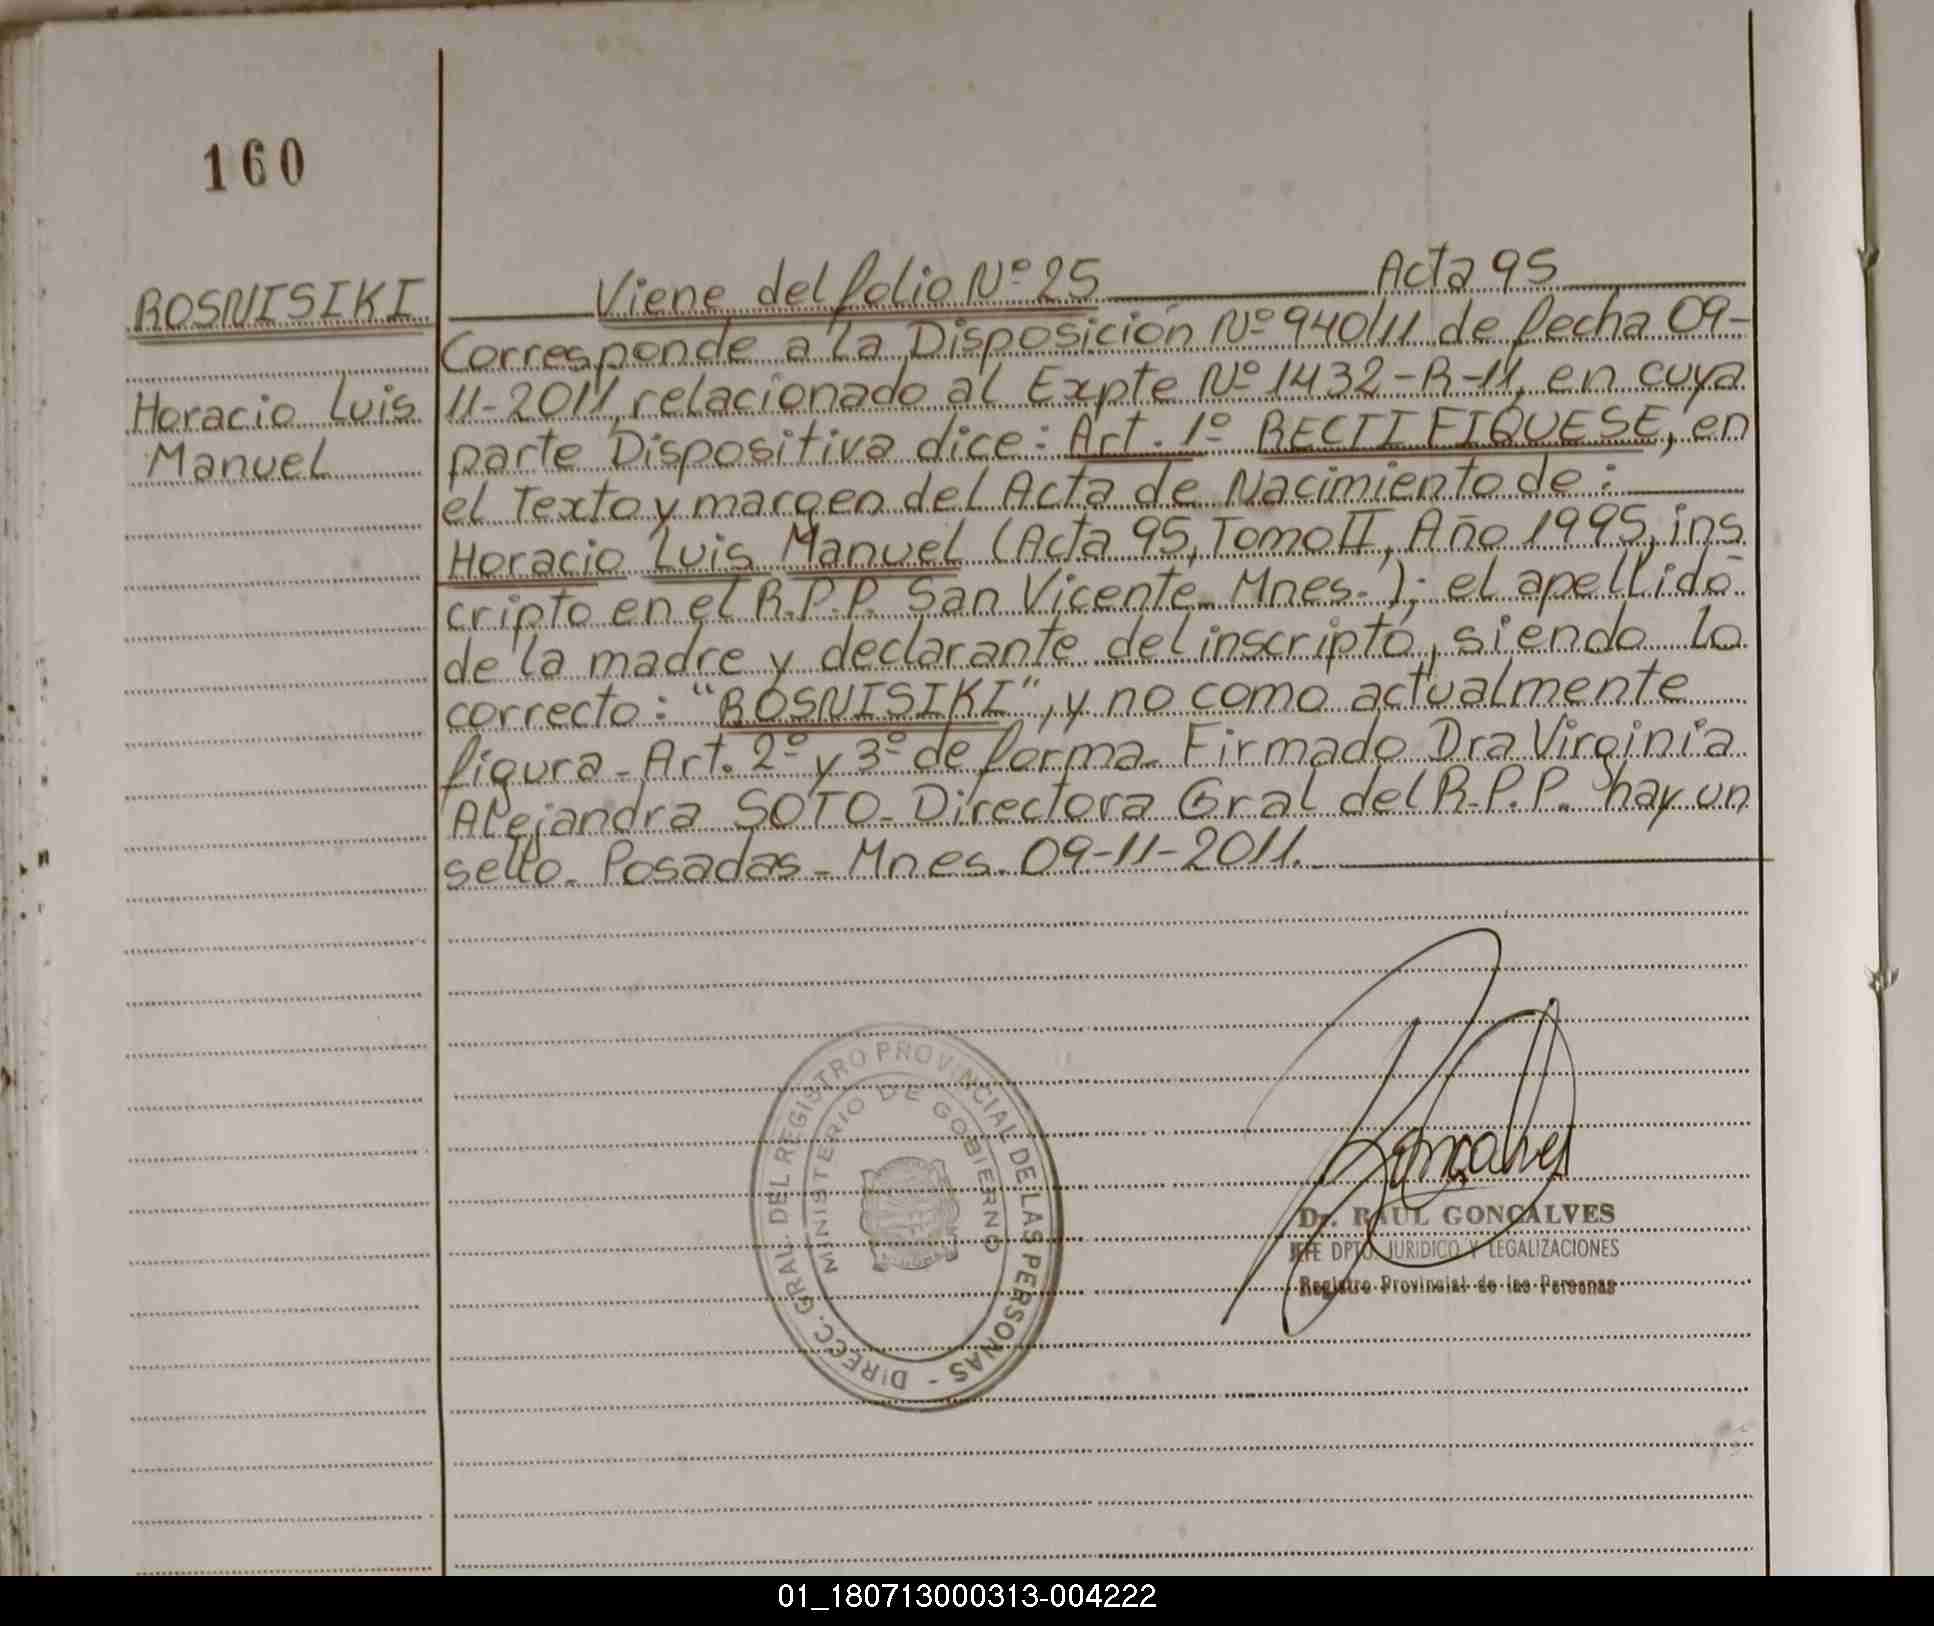 160
ROSNISIKI
Horacio Luis
Manuel
Viene del folio Nº 25 Acta 95
Corresponde a la Disposición Nº 940/11 de fecha 09-
11-2011, relacionado al Expte Nº 1432-R-11, en cuya
parte Dispositiva dice: Art. 1º RECTIFIQUESE, en
el Texto y margen del Acta de Nacimiento de:
Horacio Luis Manuel (Acta 95, Tomo II, Año 1995, ins
cripto en el R.P.P. San Vicente - Mnes.); el apellido
de la madre y declarante del inscripto, siendo lo
correcto: "ROSNISIKI", y no como actualmente
figura - Art. 2º y 3º de forma - Firmado Dra Virginia
Alejandra SOTO - Directora Gral del R.P.P. hay un
sello - Posadas - Mnes. 09-11-2011.
DIRECC. GRAL. DEL REGISTRO PROVINCIAL DE LAS PERSONAS -
MINISTERIO DE GOBIERNO
Goncalves
Dr. RAUL GONCALVES
JEFE DPTO. JURIDICO Y LEGALIZACIONES
Registro Provincial de las Personas
01_180713000313-004222